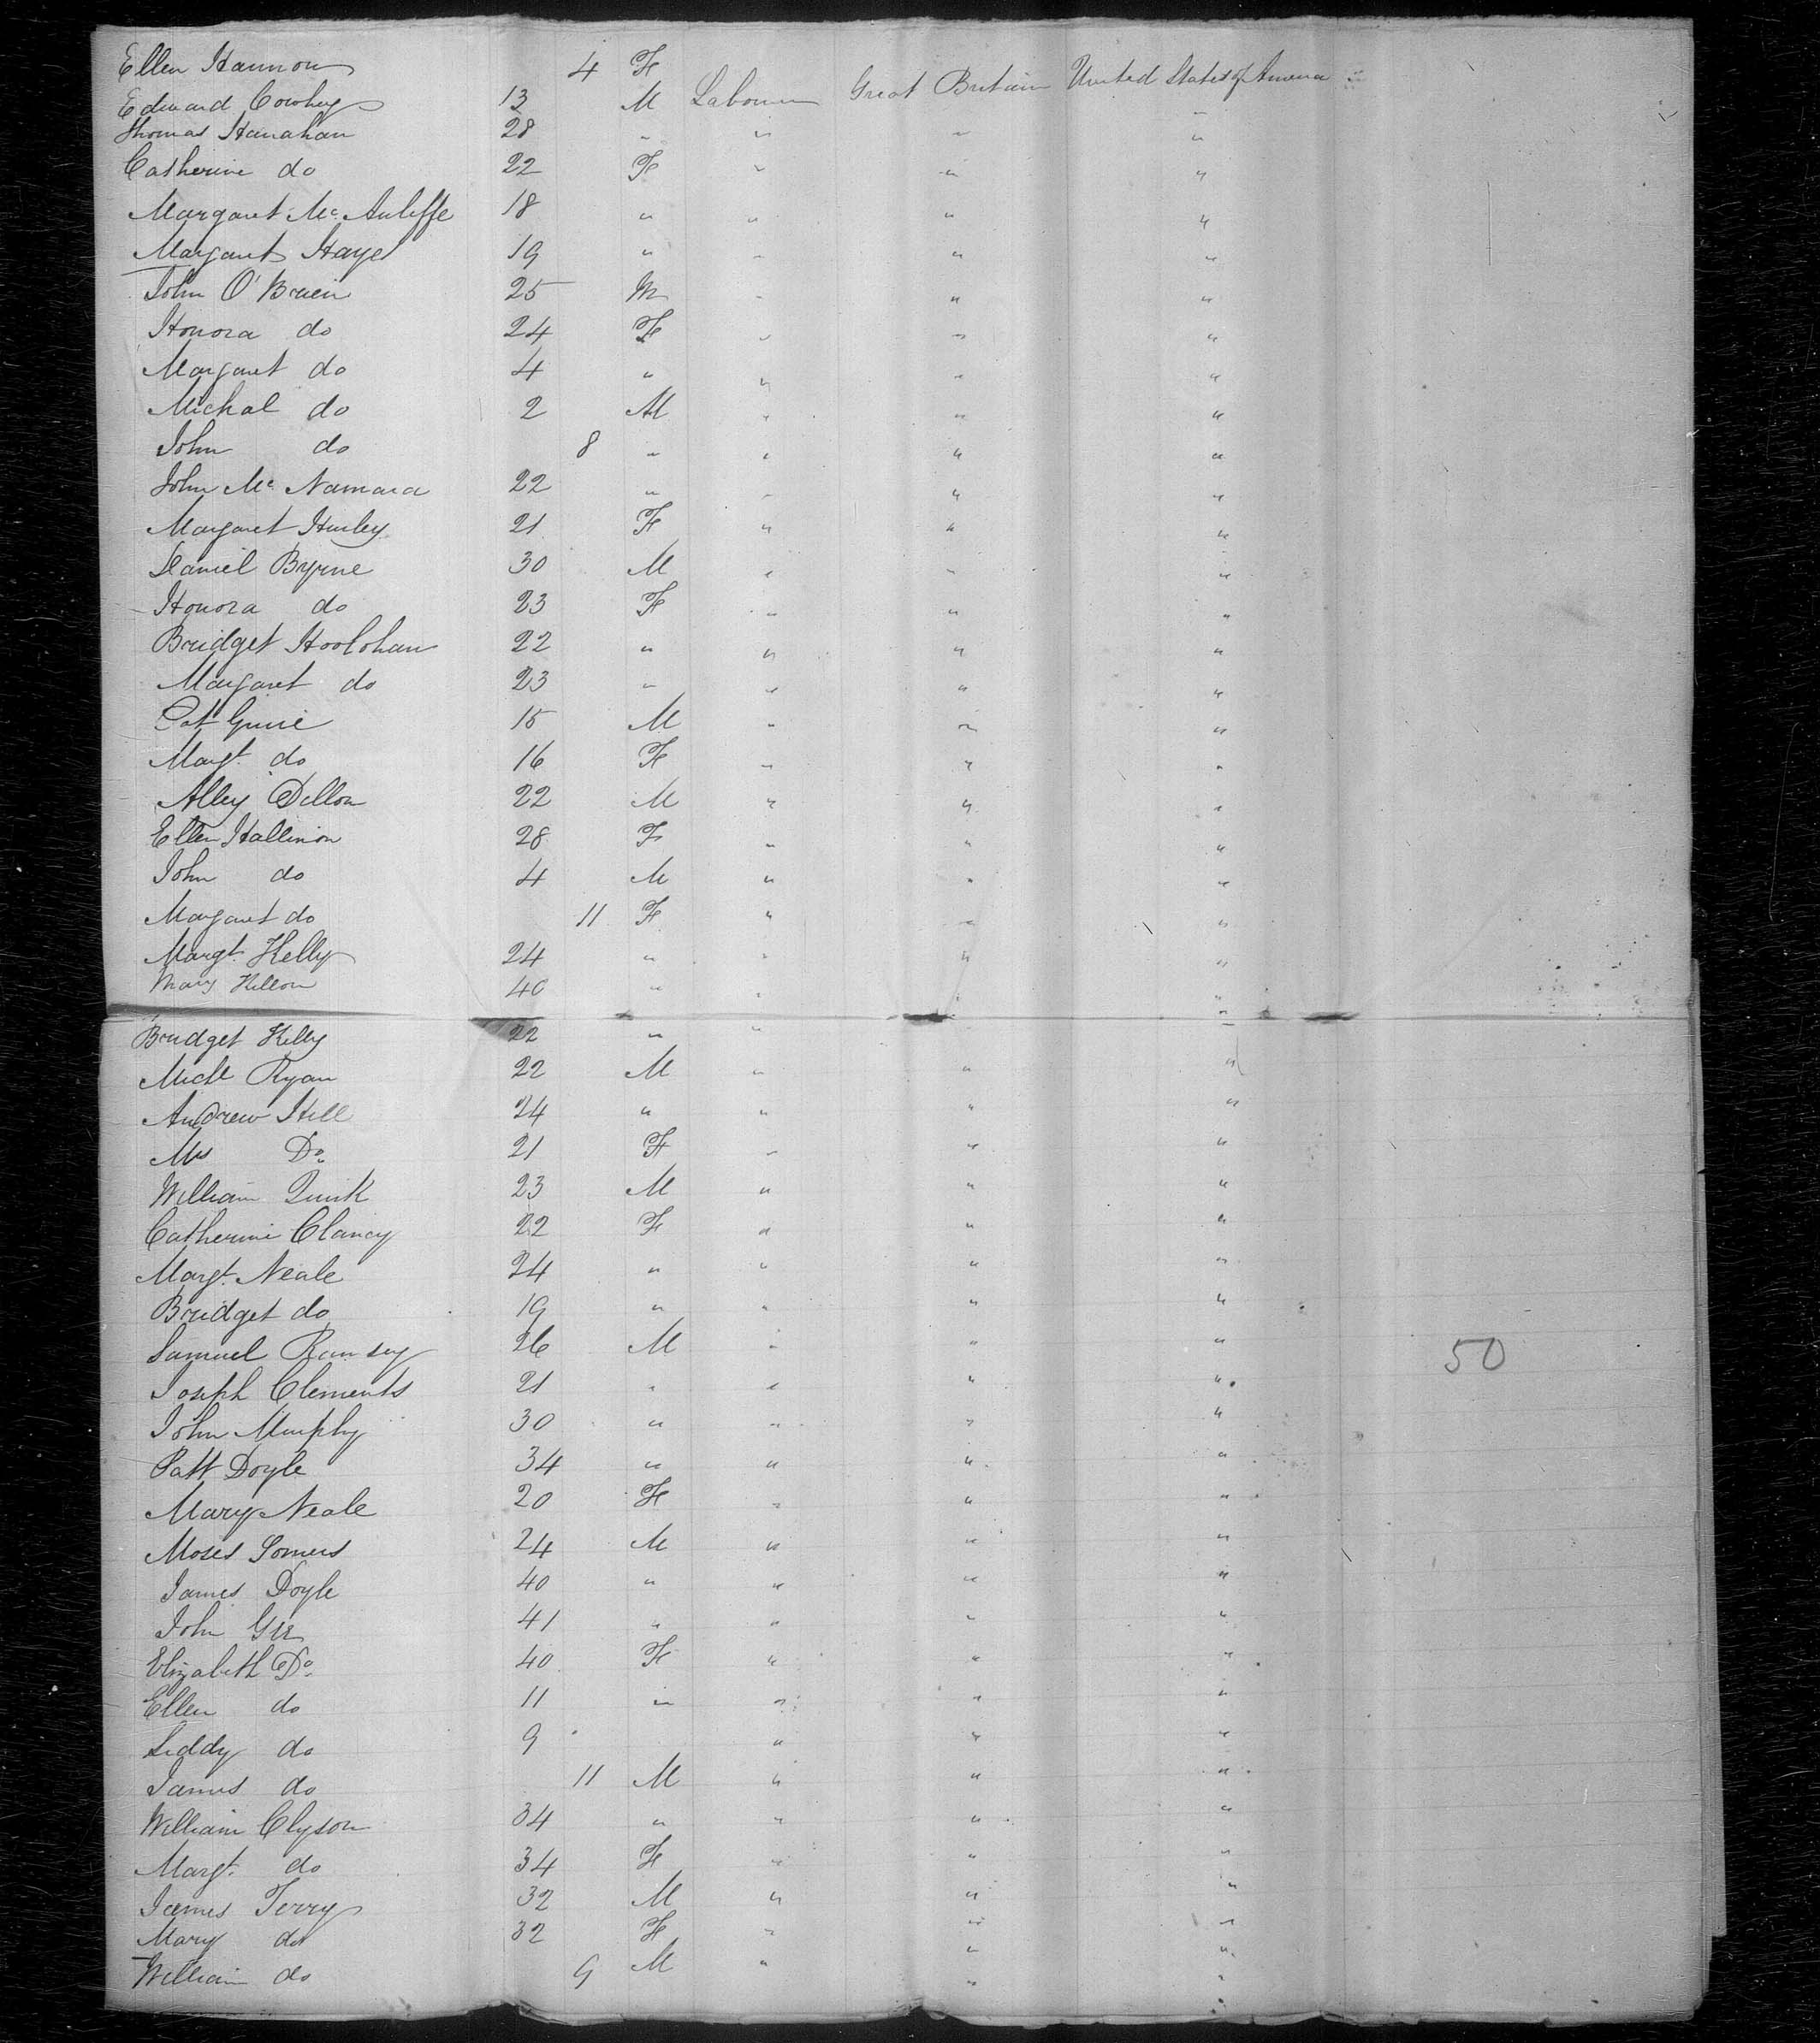 Ellen Hannon 4 F
Edward Cowhey 13 M Labourer Great Britain United States of America
Thomas Hanahan 28 " " " "
Catherine do 22 F " " "
Margaret Mc Auliffe 18 " " " "
Margaret Hayes 19 " " " "
John O'Brien 25 M " " "
Honora do 24 F " " "
Margaret do 4 " " " "
Michal do 2 M " " "
John do 8 " " " "
John Mc Namara 22 " " " "
Margaret Hurley 21 F " " "
Daniel Byrne 30 M " " "
Honora do 23 F " " "
Bridget Hoolohan 22 " " " "
Margaret do 23 " " " "
Pat 15 M " " "
Margt. do 16 F " " "
Alley Dillon 22 M " " "
Ellen Hallinon 28 F " " "
John do 4 M " " "
Margaret do 11 F " " "
Margt. Kelly 24 " " " "
Mary 40 " " " "
Bridget Kelly 22 " " " "
Michl Ryan 22 M " " "
Andrew Hill 24 " " " "
Mrs Do 21 F " " "
William Quirk 23 M " " "
Catherine Clancy 22 F " " "
Margt. Neale 24 " " " "
Bridget do 19 " " " "
Samuel Ramsey 26 M " " " 50
Joseph Clements 21 " " " "
John Murphy 30 " " " "
Patt Doyle 34 " " " "
Mary Neale 20 F " " "
Moses Somers 24 M " " "
James Doyle 40 " " " "
John 41 " " " "
Elizabeth Do 40 F " " "
Ellen do 11 " " " "
Liddy do 9 " " " "
James do 11 M " " "
William Clyson 34 " " " "
Margt. do 34 F " " "
James Terry 32 M " " "
Mary do 32 F " " "
William do 9 M " " "